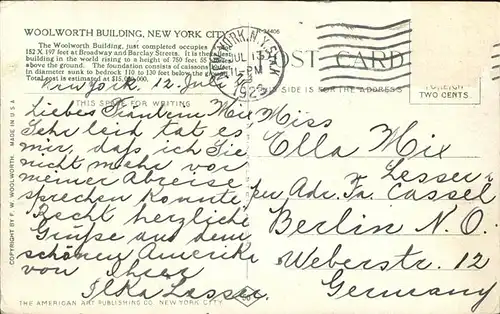 WOOLWORTH BUILDING, NEW YORK CITY
The Woolworth Building, just completed occupies a
152 X 197 feet at Broadway and Barclay Streets. It is the
building in the world rising to a height of 750 feet 55
above the ground. The foundation consists of caissons
in diameter sunk to bedrock 110 to 130 feet below the
Total cost is estimated at
POST CARD
THIS SPACE FOR WRITING
THIS SIDE IS FOR THE ADDRESS
FOREIGN
TWO CENTS.
NEW YORK, N.Y.
JUL 13
PM
COPYRIGHT BY F. W. WOOLWORTH. MADE IN U S A
New York, 12. Juli
Liebes Fräulein Mix
Sehr leid tat es
mir, daß ich Sie
nicht mehr vor
meiner Abreise
sprechen konnte
Recht herzliche
Grüße aus dem
schönen Amerika
von Ihrer
Ilka Lesser.
Miss
Ella Mix
per Adr. Fa. Lesser &
Cassel
Berlin N. O.
Weberstr. 12
Germany
THE AMERICAN ART PUBLISHING CO. NEW YORK CITY